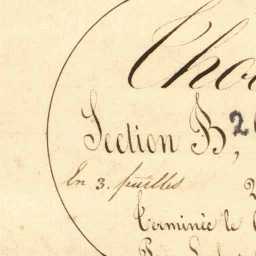 Cho
Section B, 2
En 3. feuilles
2
Terminée le